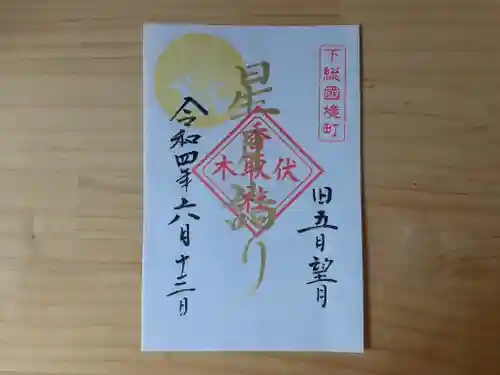 下総國境町
旧五日望月
星
詣り
伏木
香取社
令和四年六月十三日